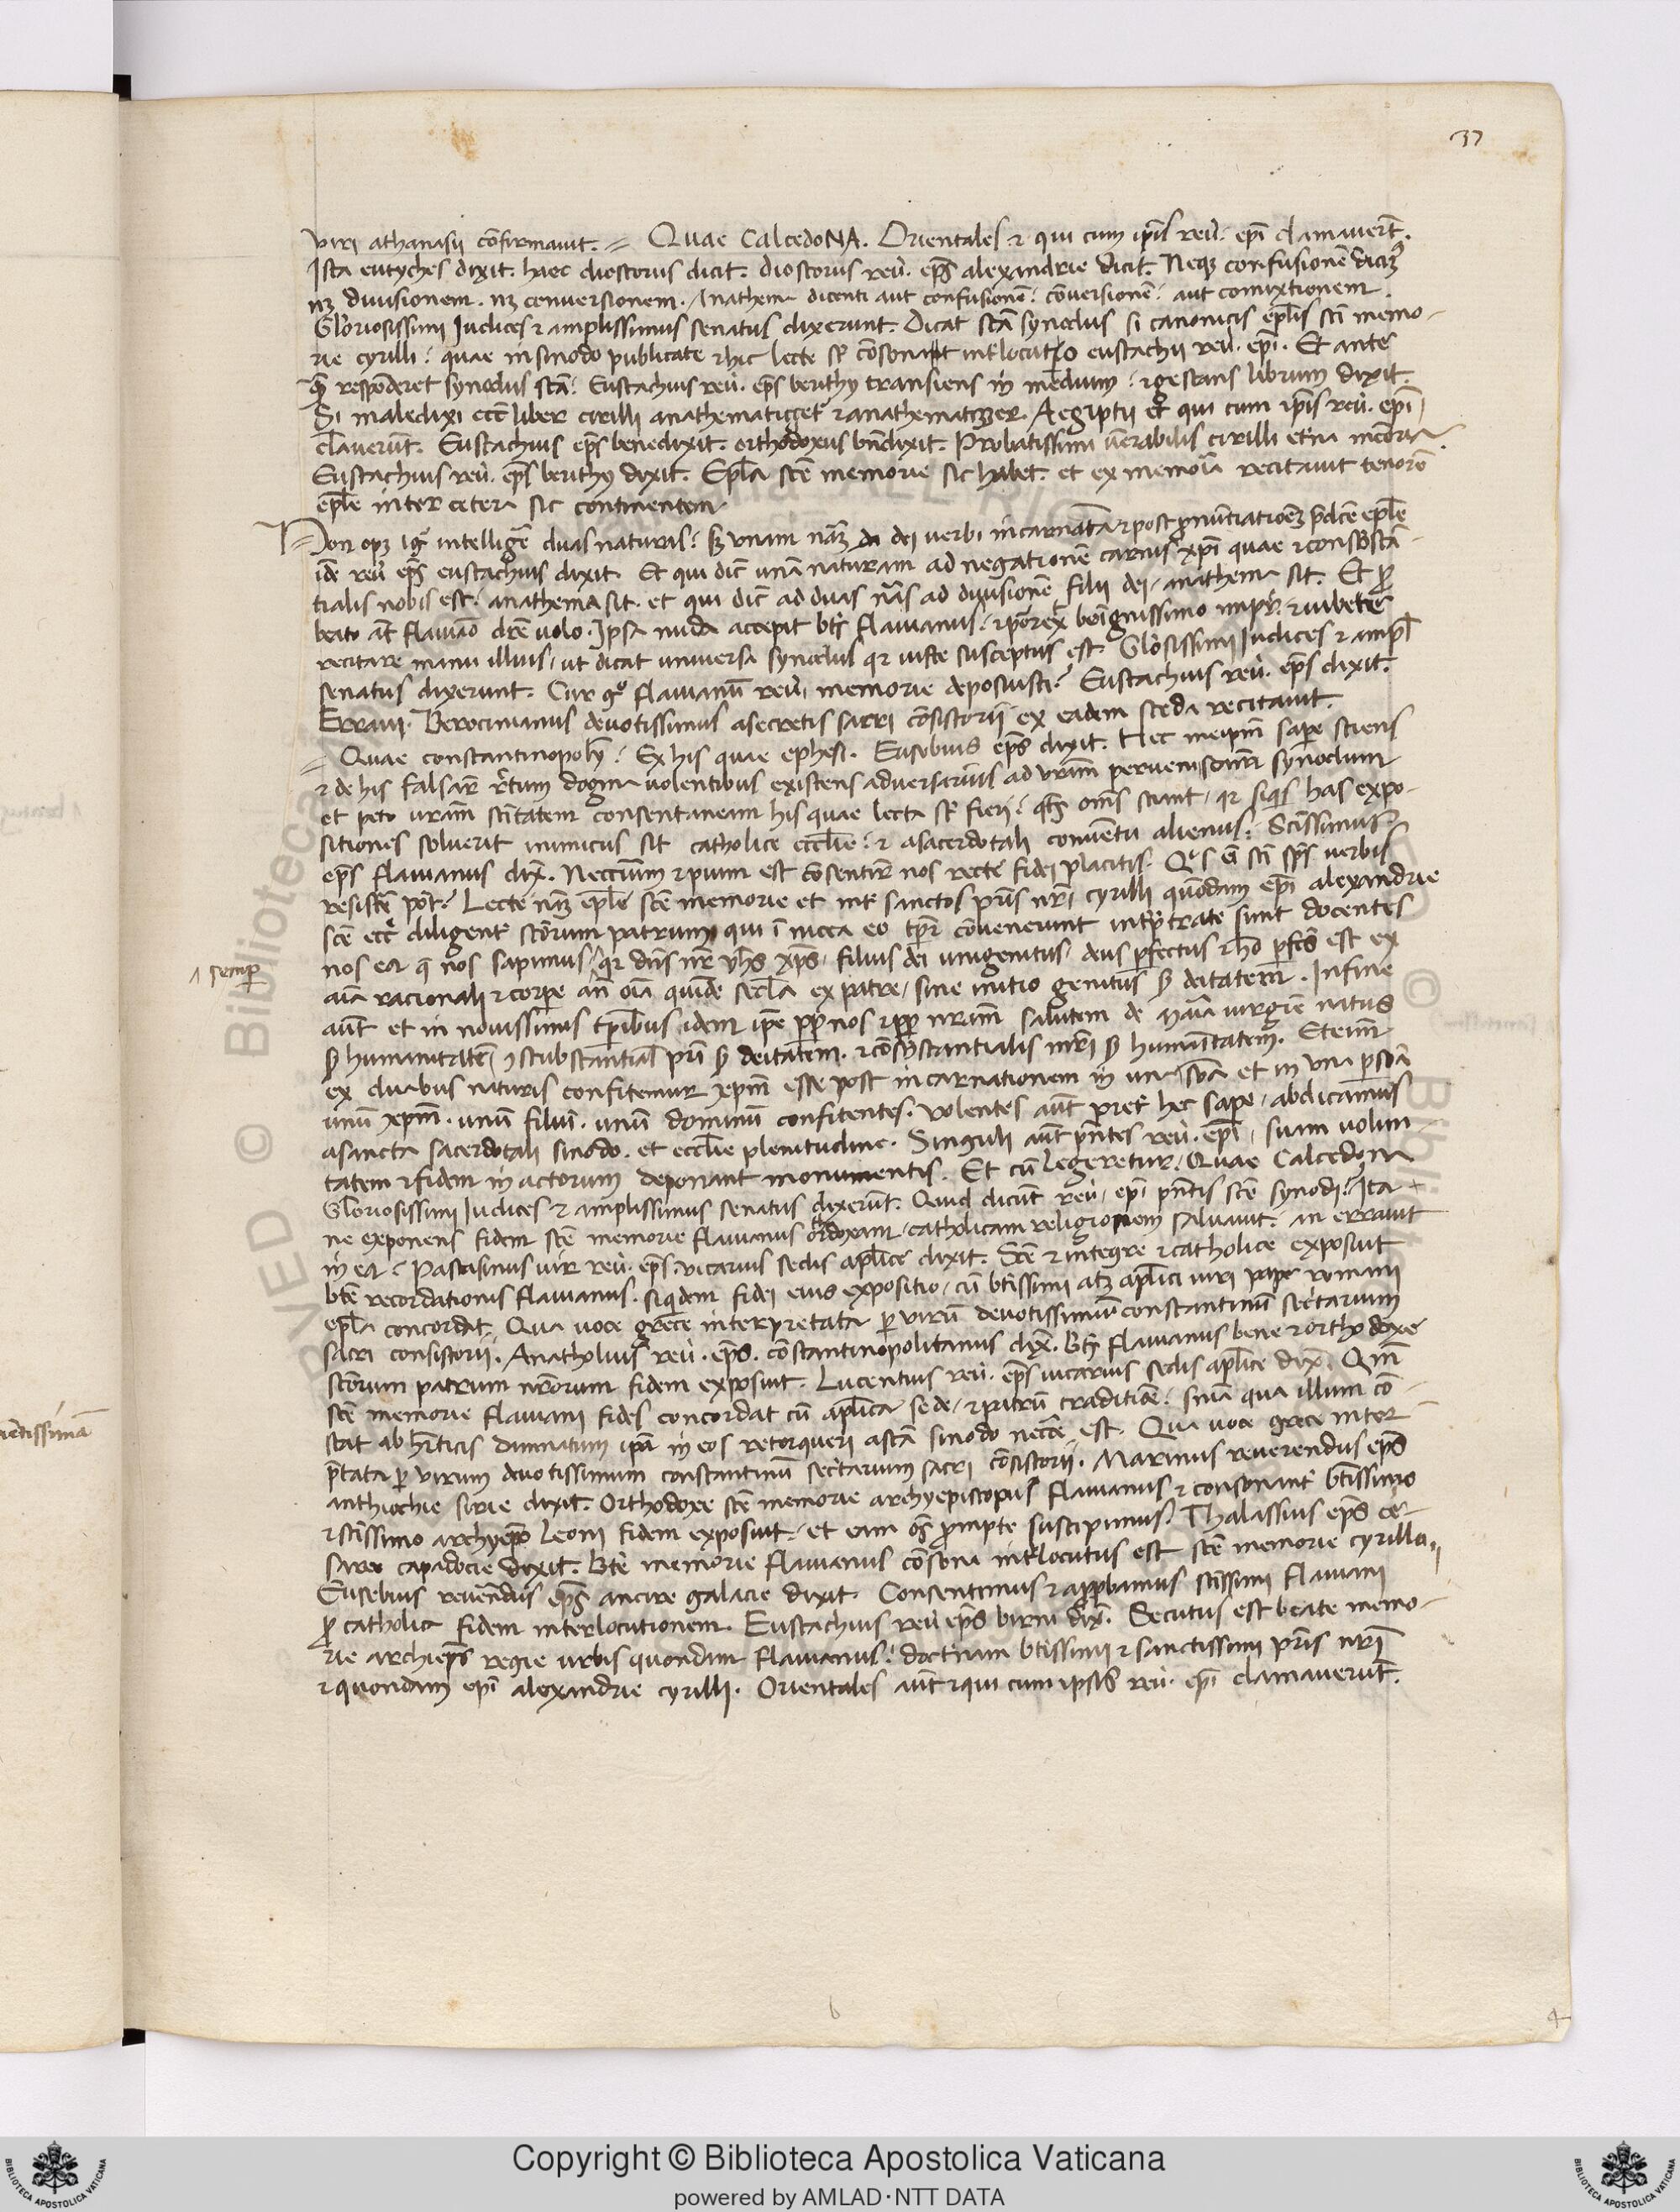 37
viri athanasij cōfirmauit. = Quae CalcedoNA. Orientales ⁊ qui cum ip̄is reū. ep̄i clamauert̄.
Ista eutyches dixit. haec dioscorus dicit. dioscorus reū. ep̄s alexandrie dicit. Neqꝫ confusionē dicimꝰ
nꝫ diuisionem. nꝫ conuersionem. Anathema dicenti aut confusionē: cōuersionē: aut comixtionem.
Gloriosissimi Iudices ⁊ amplissimus senatus dixerunt. Dicat sctā synodus si canonicis ep̄lis scti memo-
rie cyrilli: quae in sinodo publicate ⁊ hic lecte st̄ cōsonat int̄locutio eustachij reū. ep̄i. Et ante
qꝫ responderet synodus sctā: Eustachius reū. ep̄s berithy transiens in medium: ⁊ gestans librum dixit.
Si maledixi ecce liber cirilli anathematizet̄ ⁊ anathematizzer. Aegiptij et qui cum ip̄is reū. ep̄i
cl̄auerūt. Eustachius ep̄s benedixit. orthodoxus bn̄dixit. Probatissimi ūerabilis cirilli et̄na mēoria.
Eustachius reū. ep̄s berithy dixit. Ep̄la scte memorie sic habet. et ex memoīa recitauit tenorē
ep̄le inter cetera sic continentem
Non opꝫ igr̄ intelligē duas naturas: sꝫ vnam nāꝫ dei uerbi incarnatā ⁊ post p̄nūtiationeꝫ p̄dcē ep̄le
idē reū ep̄s eustachius dixit. Et qui dic̄ unā naturam ad negationē carnis xp̄i quae ⁊ consb̄stā-
tialis nobis est: anathema sit. et qui dic̄ ad duas nās ad diuisionē filij dei, anathema sit. Et ꝓ
beato āt flauiāo dr̄e uolo. Ipsa nuda accepit bt̄s flauianus: ⁊ porex̄ benignissimo imp̄r. ⁊ iubete
recitare manu illius, ut dicat uniuersa synodus qr iuste susceptus est. Glōsissimi Iudices ⁊ ampl̄
senatus dixerunt. Cur gͦ flauianū reū, memorie deposuisti? Eustachius reū. ep̄s dixit.
Erraui. Berocinianus deuotissimus asecretis sacri cōsistorij ex eadem sceda recitauit.
= Quae constantinopoly: Ex his quae ephesi. Eusebius ep̄s dixit. Hec meip̄m sapere sciens
⁊ de his falsar̄ r̄tum dogma uolentibus existens aduersarius ad vr̄am perueni sctām synodum
et peto uram sctitatem consentaneam his quae lecta st̄ fieri: qts om̄s sciant, qr siqs has expo-
sitiones soluerit inimicus sit catholice eccl̄ie: ⁊ asacerdotali conuētu alienus. Sctissimus
ep̄s flauianus dix̄. Neccium ⁊ pium est cōsentir̄ nos recte fidei placitis. Qͥs em̄ scti sp̄s verbis
resistē pōt? Lecte nāꝫ ep̄le scte memorie et int̄ sanctos p̄ris nr̄i cyrilli quōdam ep̄i alexandrie
scte ecc̄ diligent̄ sctorum patrum qui ī nicea eo tp̄r cōuenerunt intp̄trate sunt docentes
nos ea q̄ nos sapimus qr dn̄s nr̄ yhs xp̄s, filius dei unigenitus, deus ꝑfectus ⁊ hō ꝑfcts est ex
^ semper
aīa racionali ⁊ corpe an̄ oīa quide scl̄a ex patre, sine initio genitus sꝫ deitatem. In fine
aūt et in nouissimis tp̄ibus idem ip̄e pp̄ nos ⁊ pp̄ nr̄am salutem de maīa uirgīe natus
sꝫ humanitatē, ꝯsubstantial̄ pr̄i sꝫ deitatem. ⁊ cōsb̄stantialis mr̄i sꝫ humanitatem. Etenim
ex duabus naturis confitemur xp̄m esse post incarnationem in una sb̄a et in una ꝑsona
unū xp̄m. unū filiū. unū dominū confitentes. uolentes aūt pret̄ hec sape, abdicamus
asancta sacerdotali sinodo. et eccl̄ie plenitudine. Singuli aūt p̄ntes reū. ep̄i, suam uolun-
tatem ⁊ fidem in actorum deponant monumentis. Et cū legeretur, Quae Calcedona
Gloriosissimi Iudices ⁊ amplissimus senatus dixerūt. Quid dicūt reū, ep̄i p̄ntis scte synodi? Ita-
ne exponens fidem scte memorie flauianus ortodoxam, catholicam religionem saluauit. an errauit
in ea: Pascasinus uir reū. ep̄s vicarius sedis apl̄ice dixit. Scte ⁊ integre ⁊ catholice exposuit
bt̄e recordationis flauianus. siqdem fidei eius expositio, cū btissimi atqꝫ apl̄ici uiri pape romani
ep̄la concordat. Qua uoce grece interpretata ꝑ virū deuotissimū constantinū sec̄tarium
sacri consistorij. Anatholius reū. ep̄s. cōstantinopolitanus dix̄. bt̄s flauianus bene ⁊ orthodoxe
sctorum patrum nr̄orum fidem exposuit. Lucentius reū. ep̄s uicarius sedis apl̄ice dix̄. Qm̄
scte memorie flauiani fides concordat cū apl̄ica sede, ⁊ patrū traditiōe: snīa qua illum cō-
stat ab hr̄eticis damnatum ip̄a in eos retorqueri asctā sinodo necc̄e est. Qua uoce grece inter-
p̄tata ꝑ virum deuotissimum constantinū sec̄tarium sacri cōsistorij. Maximus reuerendus ep̄s
anthiochie sirie dixit. Orthodoxe scte memorie archyepiscopus flauianus ⁊ consonant̄ btissimo
⁊ sctissimo archyep̄o leoni fidem exposuit. et eam om̄s ꝓmpte suscipimus. Thalassius ep̄s ce-
saree capadocie dixit. bt̄e memorie flauianus cōsona int̄locutus est scte memorie cyrillo,,
Eusebius reuēdus ep̄s ancire galacie dixit. Consentimus ⁊ app̄bamus sctissimi flauiani
ꝓ catholica fidem interlocutionem. Eustachius reū ep̄s birni dix̄. Secutus est beate memo-
rie archiep̄s regie urbis quondam flauianus: doct̄nam btissimi ⁊ sanctissimi pr̄is nr̄i
⁊ quondam ep̄i alexandrie cyrilli. Orientales aūt ⁊ qui cum ipsis reū. ep̄i clamauerūt.
Copyright © Biblioteca Apostolica Vaticana
powered by AMLAD·NTT DATA